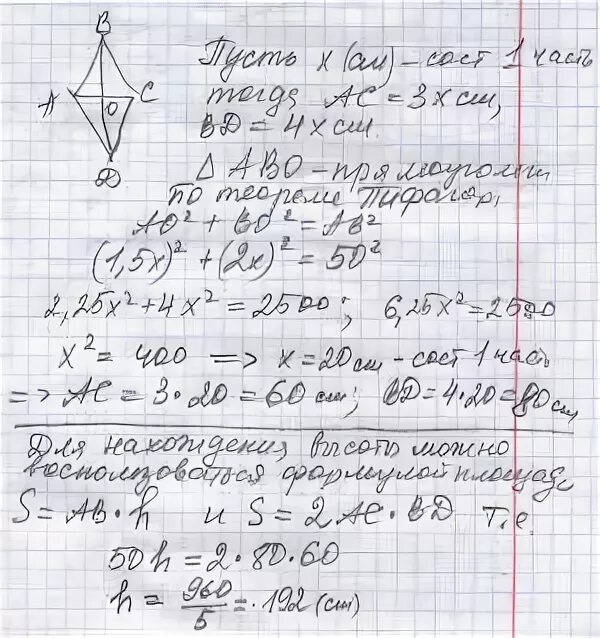 B
A O C
D
Пусть x (см) – сост 1 часть
тогда AC = 3x см,
BD = 4x см.
△ ABO – прямоугольн
по теореме Пифагора,
AO² + BO² = AB²
(1,5x)² + (2x)² = 50²
2,25x² + 4x² = 2500; 6,25x² = 2500
x² = 400 => x = 20 см – сост 1 часть
=> AC = 3·20 = 60 см; BD = 4·20 = 80 см
Для нахождения высоты можно
воспользоваться формулой площади
S = AB·h и S = 2AC·BD т.е.
50h = 2·80·60
h = 960/5 = 192 (см)